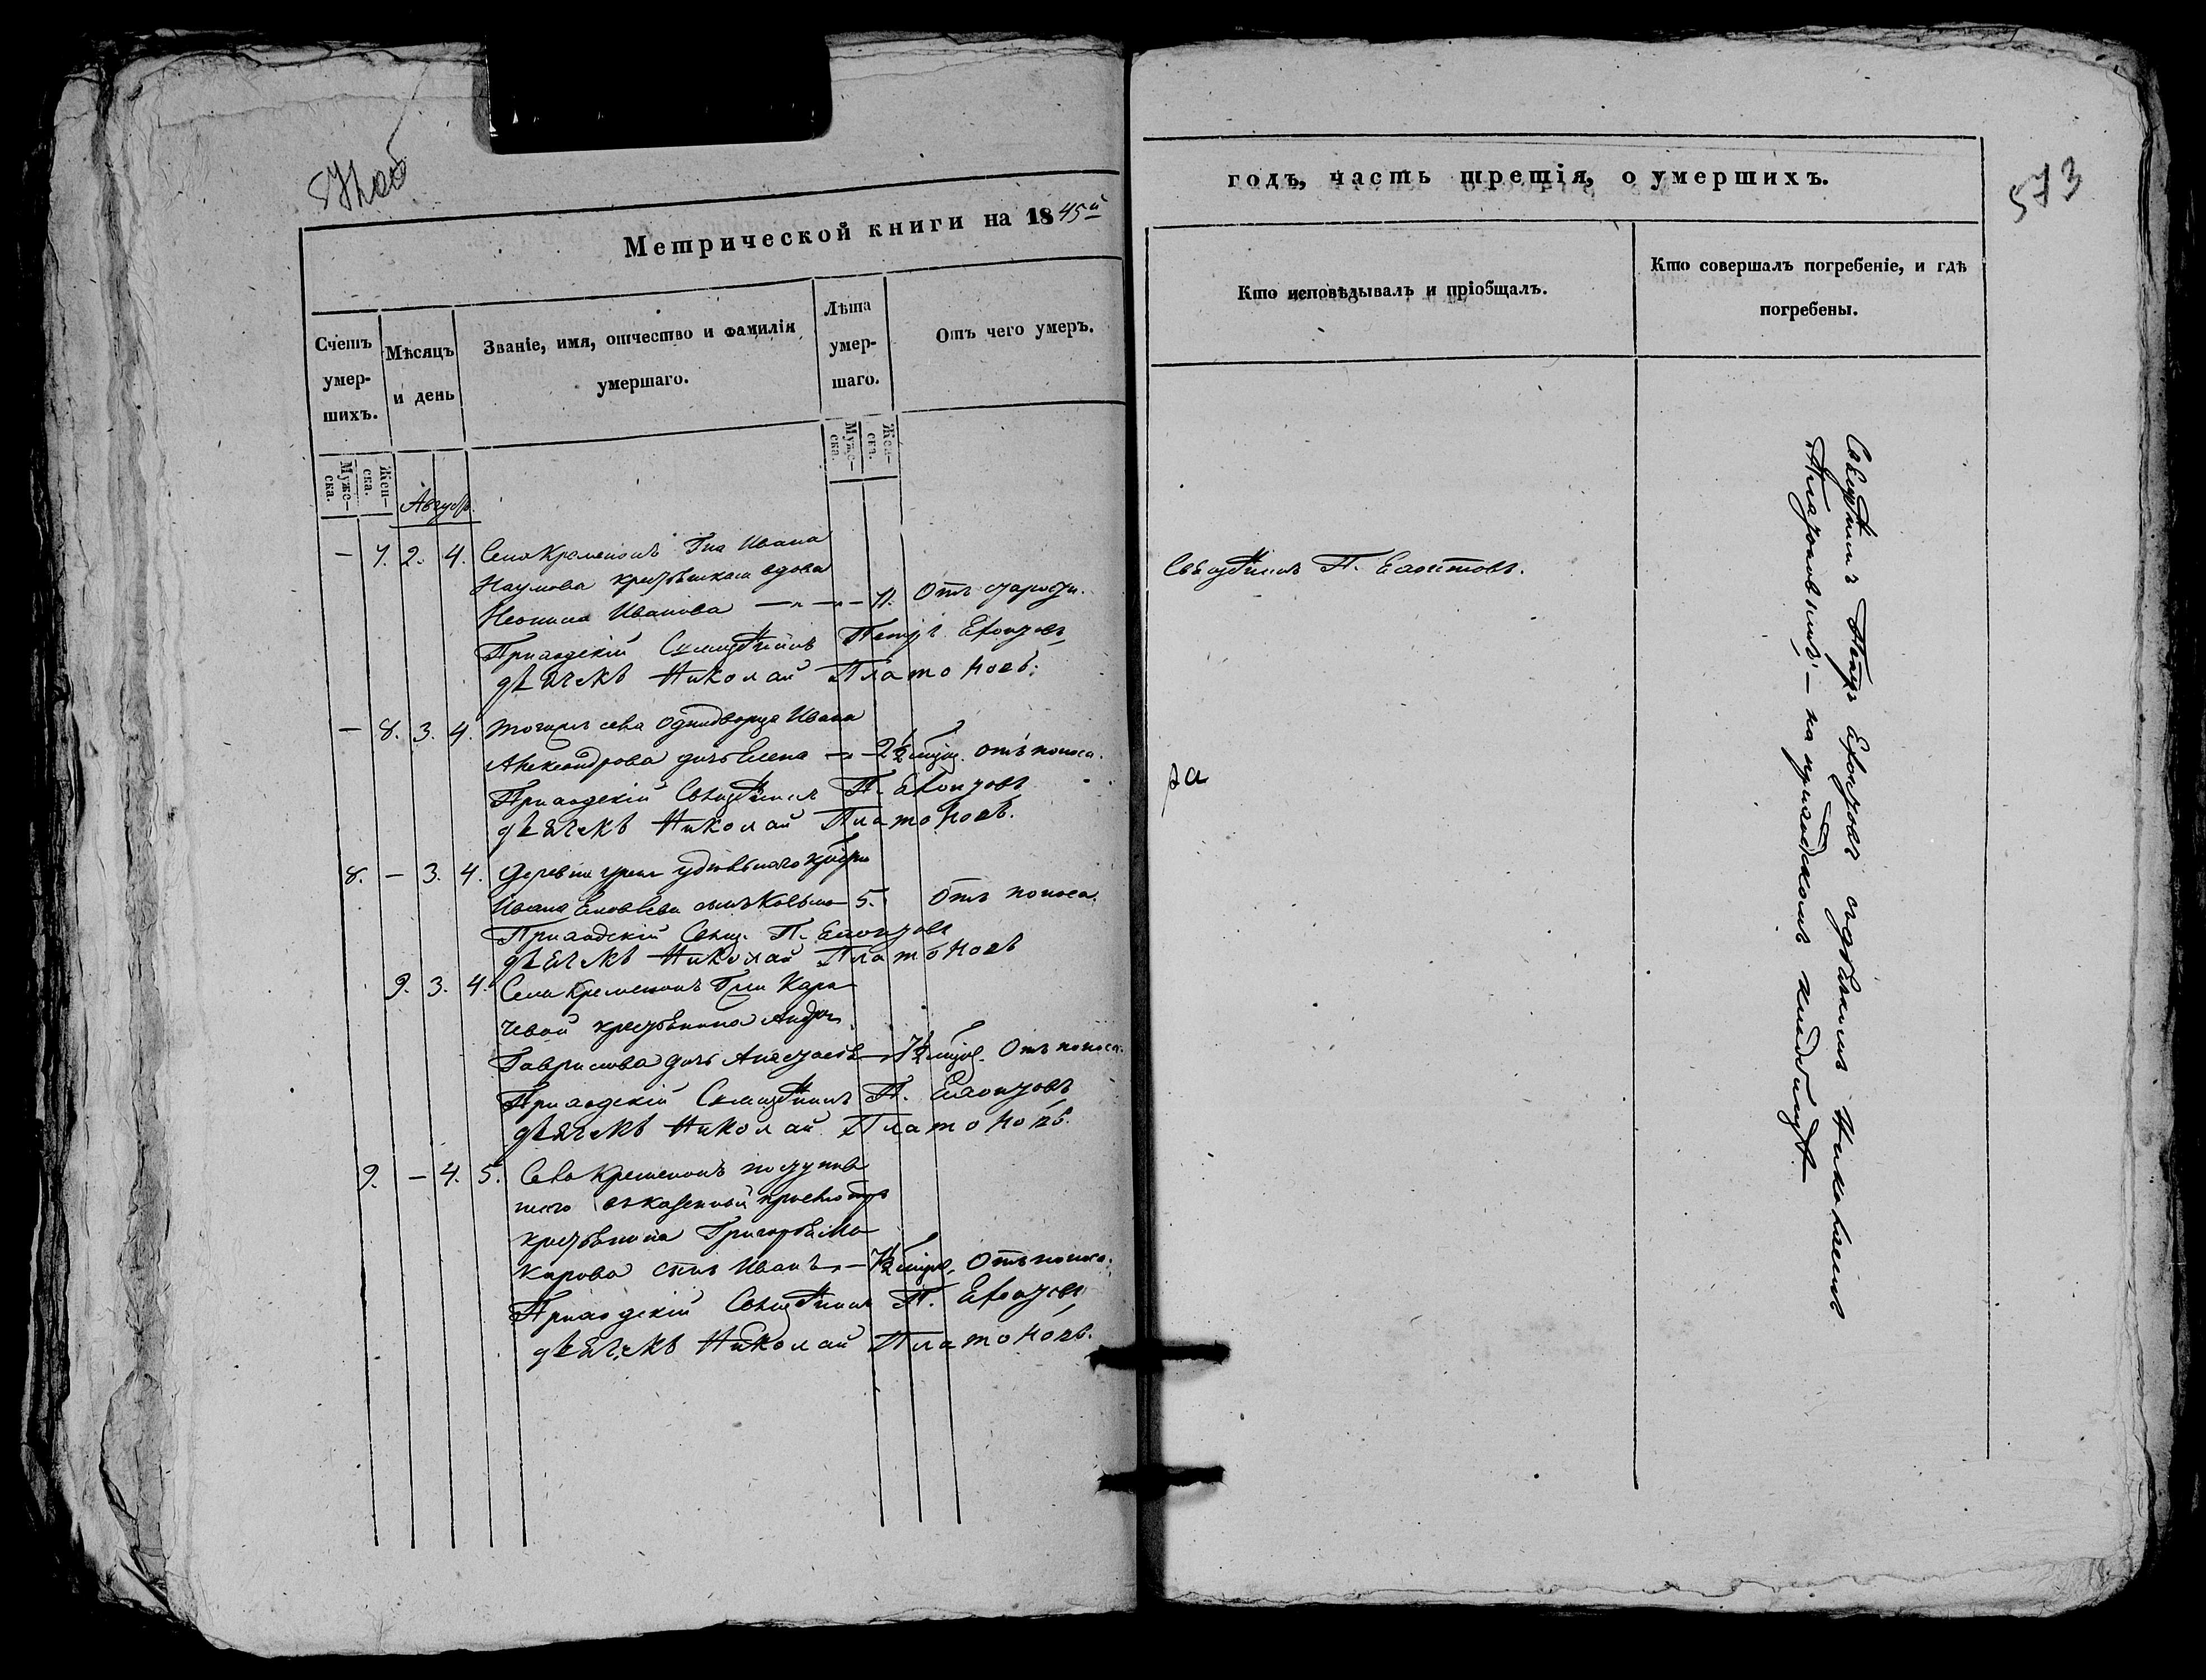 572об
Метрической книги на 1845й
Счетъ умершихъ.
Мѣсяцъ и день
Званіе, имя, отчество и фамилія умершаго.
Лѣта умершаго.
Отъ чего умеръ.
Мужеска.
Женска.
Мужеска.
Женска.
Август.
— 7. 2. 4. Села Кременокъ Гна Ивана
Наумова крестьянская вдова
Неонила Иванова — 71. Отъ старости.
Приходскій Священникъ Петръ
дьячекъ Николай Платоновъ.
— 8. 3. 4. Тогожъ села однодворца Ивана
Александрова дочь Елена — 2½ мѣсяц. отъ поноса.
Приходскій Священникъ П.
дьячекъ Николай Платоновъ.
8. — 3. 4. Деревни удѣльнаго крестьян
Ивана сынъ Косьма 5. Отъ поноса.
Приходскій Свящ. П.
дьячекъ Николай Платоновъ
9. 3. 4. Села Кременокъ Гжи Кара
чевой крестьянина Андрея
Гаврилова дочь Анастасія — 7½ мѣсяц. Отъ поноса.
Приходскій Священникъ П.
дьячекъ Николай Платоновъ.
9. — 4. 5. Села Кременокъ поступив
шаго въ казенной
крестьянина Григорья Ма
карова сынъ Иванъ — 7½ мѣсяц. Отъ поноса.
Приходскій Священникъ П.
дьячекъ Николай Платоновъ.
годъ, часть третія, о умершихъ.
573
Кто исповѣдывалъ и пріобщалъ.
Кто совершалъ погребеніе, и гдѣ погребены.
Священникъ П.
Священникъ Петръ съ дьячкомъ Николаемъ
Платоновымъ; — на приходскомъ кладбищѣ